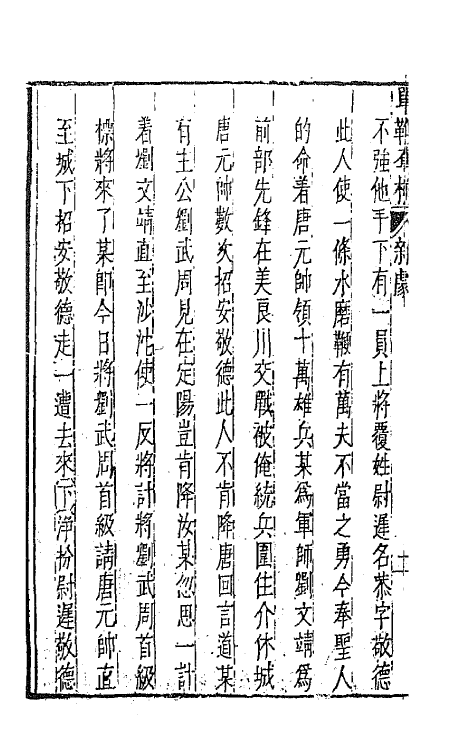 單鞭奪槊 新劇 十
不強他手下有一員上將覆姓尉遲名恭字敬德
此人使一條水磨鞭有萬夫不當之勇今奉聖人
的命着唐元帥領十萬雄兵某爲軍師劉文靖爲
前部先鋒在美良川交戰被俺統兵圍住介休城
唐元帥數次招安敬德此人不肯降唐回言道某
有主公劉武周見在定陽豈肯降汝某忽思一計
着劉文靖直至沙沱使一反將計將劉武周首級
標將來了某卽今日將劉武周首級請唐元帥直
至城下招安敬德走一遭去來下淨扮尉遲敬德